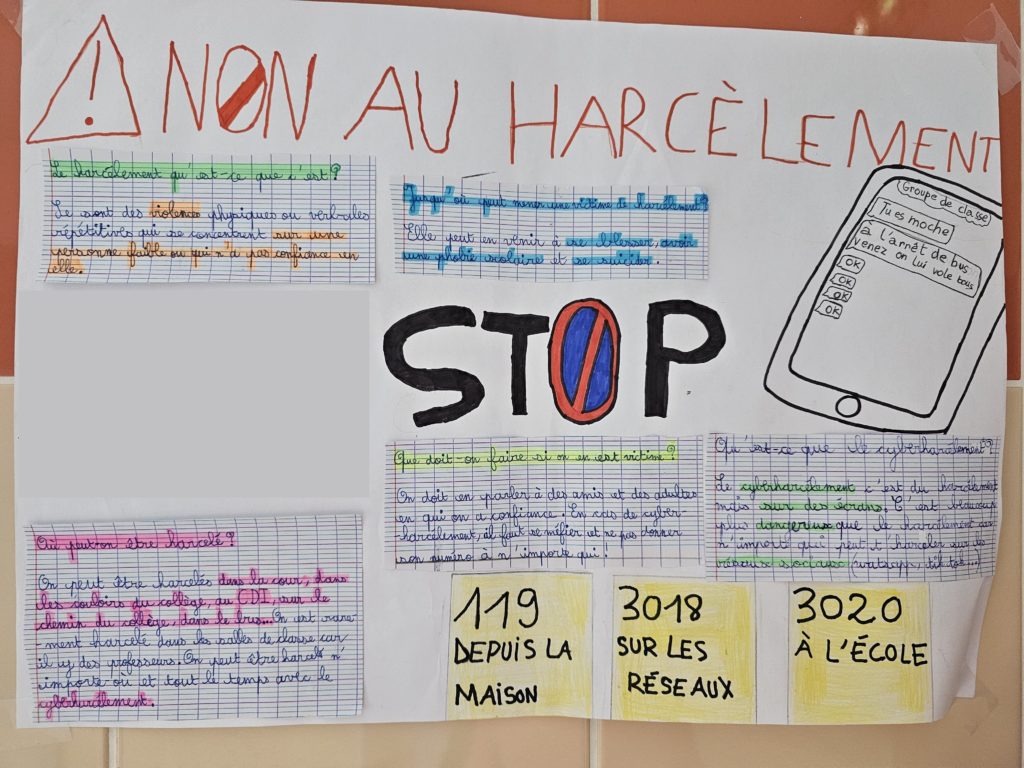 NON AU HARCÈLEMENT
Le harcèlement qu'est-ce que c'est?
Ce sont des violences physiques ou verbales
répétitives qui se concentrent sur une
personne faible ou qui n'a pas confiance en
elle.
Jusqu'où peut mener une victime de harcèlement?
Elle peut en venir à se blesser, avoir
une phobie scolaire et se suicider.
Groupe de classe
Tu es moche
à l'arrêt de bus
venez on lui vole tous
OK
OK
OK
OK
STOP
Que doit-on faire si on en est victime?
On doit en parler à des amis et des adultes
en qui on a confiance. En cas de cyber-
harcèlement, il faut se méfier et ne pas donner
son numéro à n'importe qui!
Qu'est-ce que le cyberharcèlement?
Le cyberharcèlement c'est du harcèlement
mais sur des écrans. C'est beaucoup
plus dangerius que le harcèlement car
n'importe qui peut t'harceler sur les
réseaux sociaux (watsapp, tik tok...)
Où peut-on être harcelé?
On peut être harcelés dans la cour, dans
les couloirs du collège, au CDI, sur le
chemin du collège, dans le bus... On est rare-
ment harcelé dans les salles de classe car
il y des professeurs. On peut être harcelé n'
importe où et tout le temps avec le
cyberharcèlement.
119
DEPUIS LA
MAISON
3018
SUR LES
RÉSEAUX
3020
À L'ÉCOLE